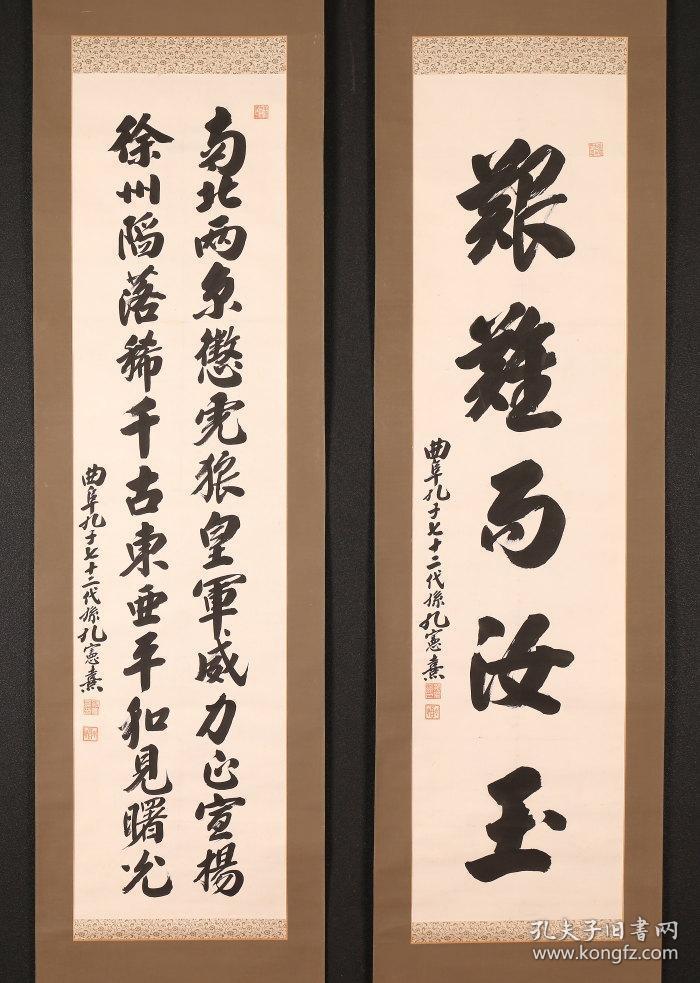 艱難而汝玉
曲阜孔子七十二代孫孔憲熹
南北兩京懲虎狼皇軍威力正宣揚
徐州陷落稀千古東亞平和見曙光
曲阜孔子七十二代孫孔憲熹
孔夫子旧书网
www.kongfz.com